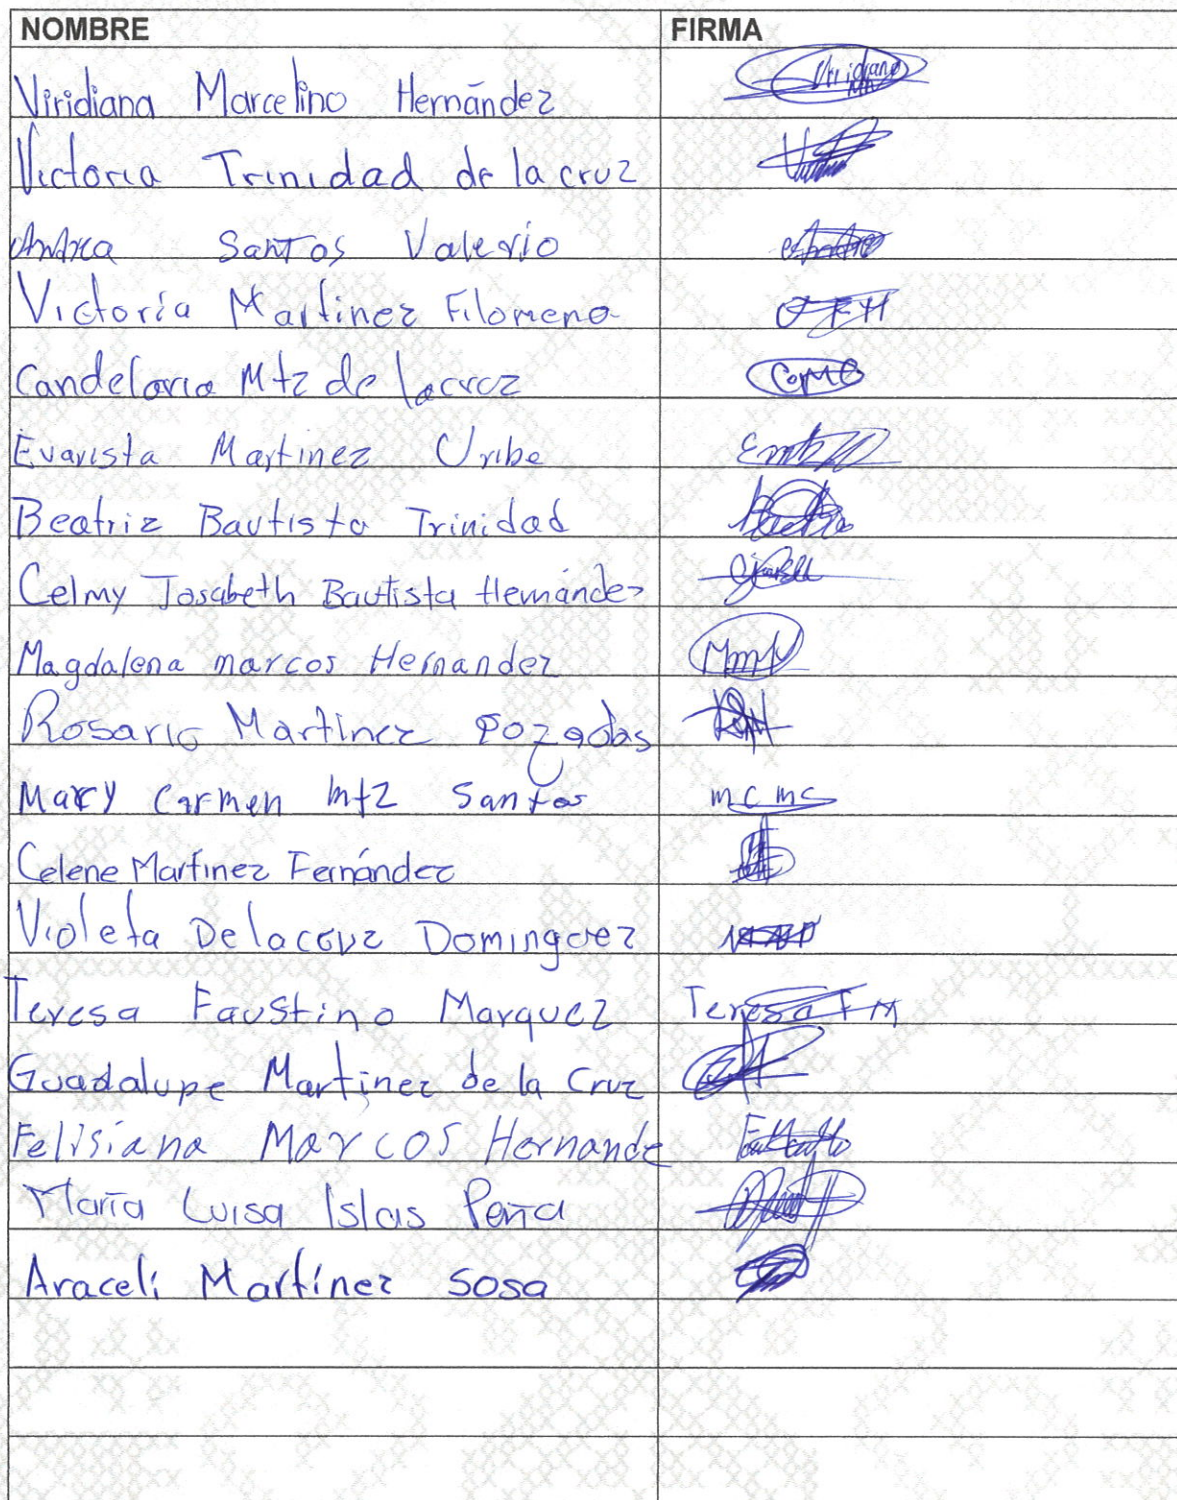 NOMBRE FIRMA
Viridiana Marcelino Hernández Viridiana
Victoria Trinidad de la cruz
Andrea Santos Valerio
Victoria Martinez Filomeno
Candelaria Mtz de lacruz
Evarista Martinez Uribe
Beatriz Bautista Trinidad
Celmy Josabeth Bautista Hernández
Magdalena marcos Hernandez
Rosario Martinez Pozadas
Mary Carmen mtz Santos mcmc
Celene Martinez Fernández
Violeta Delacruz Dominguez
Teresa Faustino Marquez Teresa F M
Guadalupe Martinez de la Cruz
Felisiana Marcos Hernande
María Luisa Islas Peña
Araceli Martínez Sosa